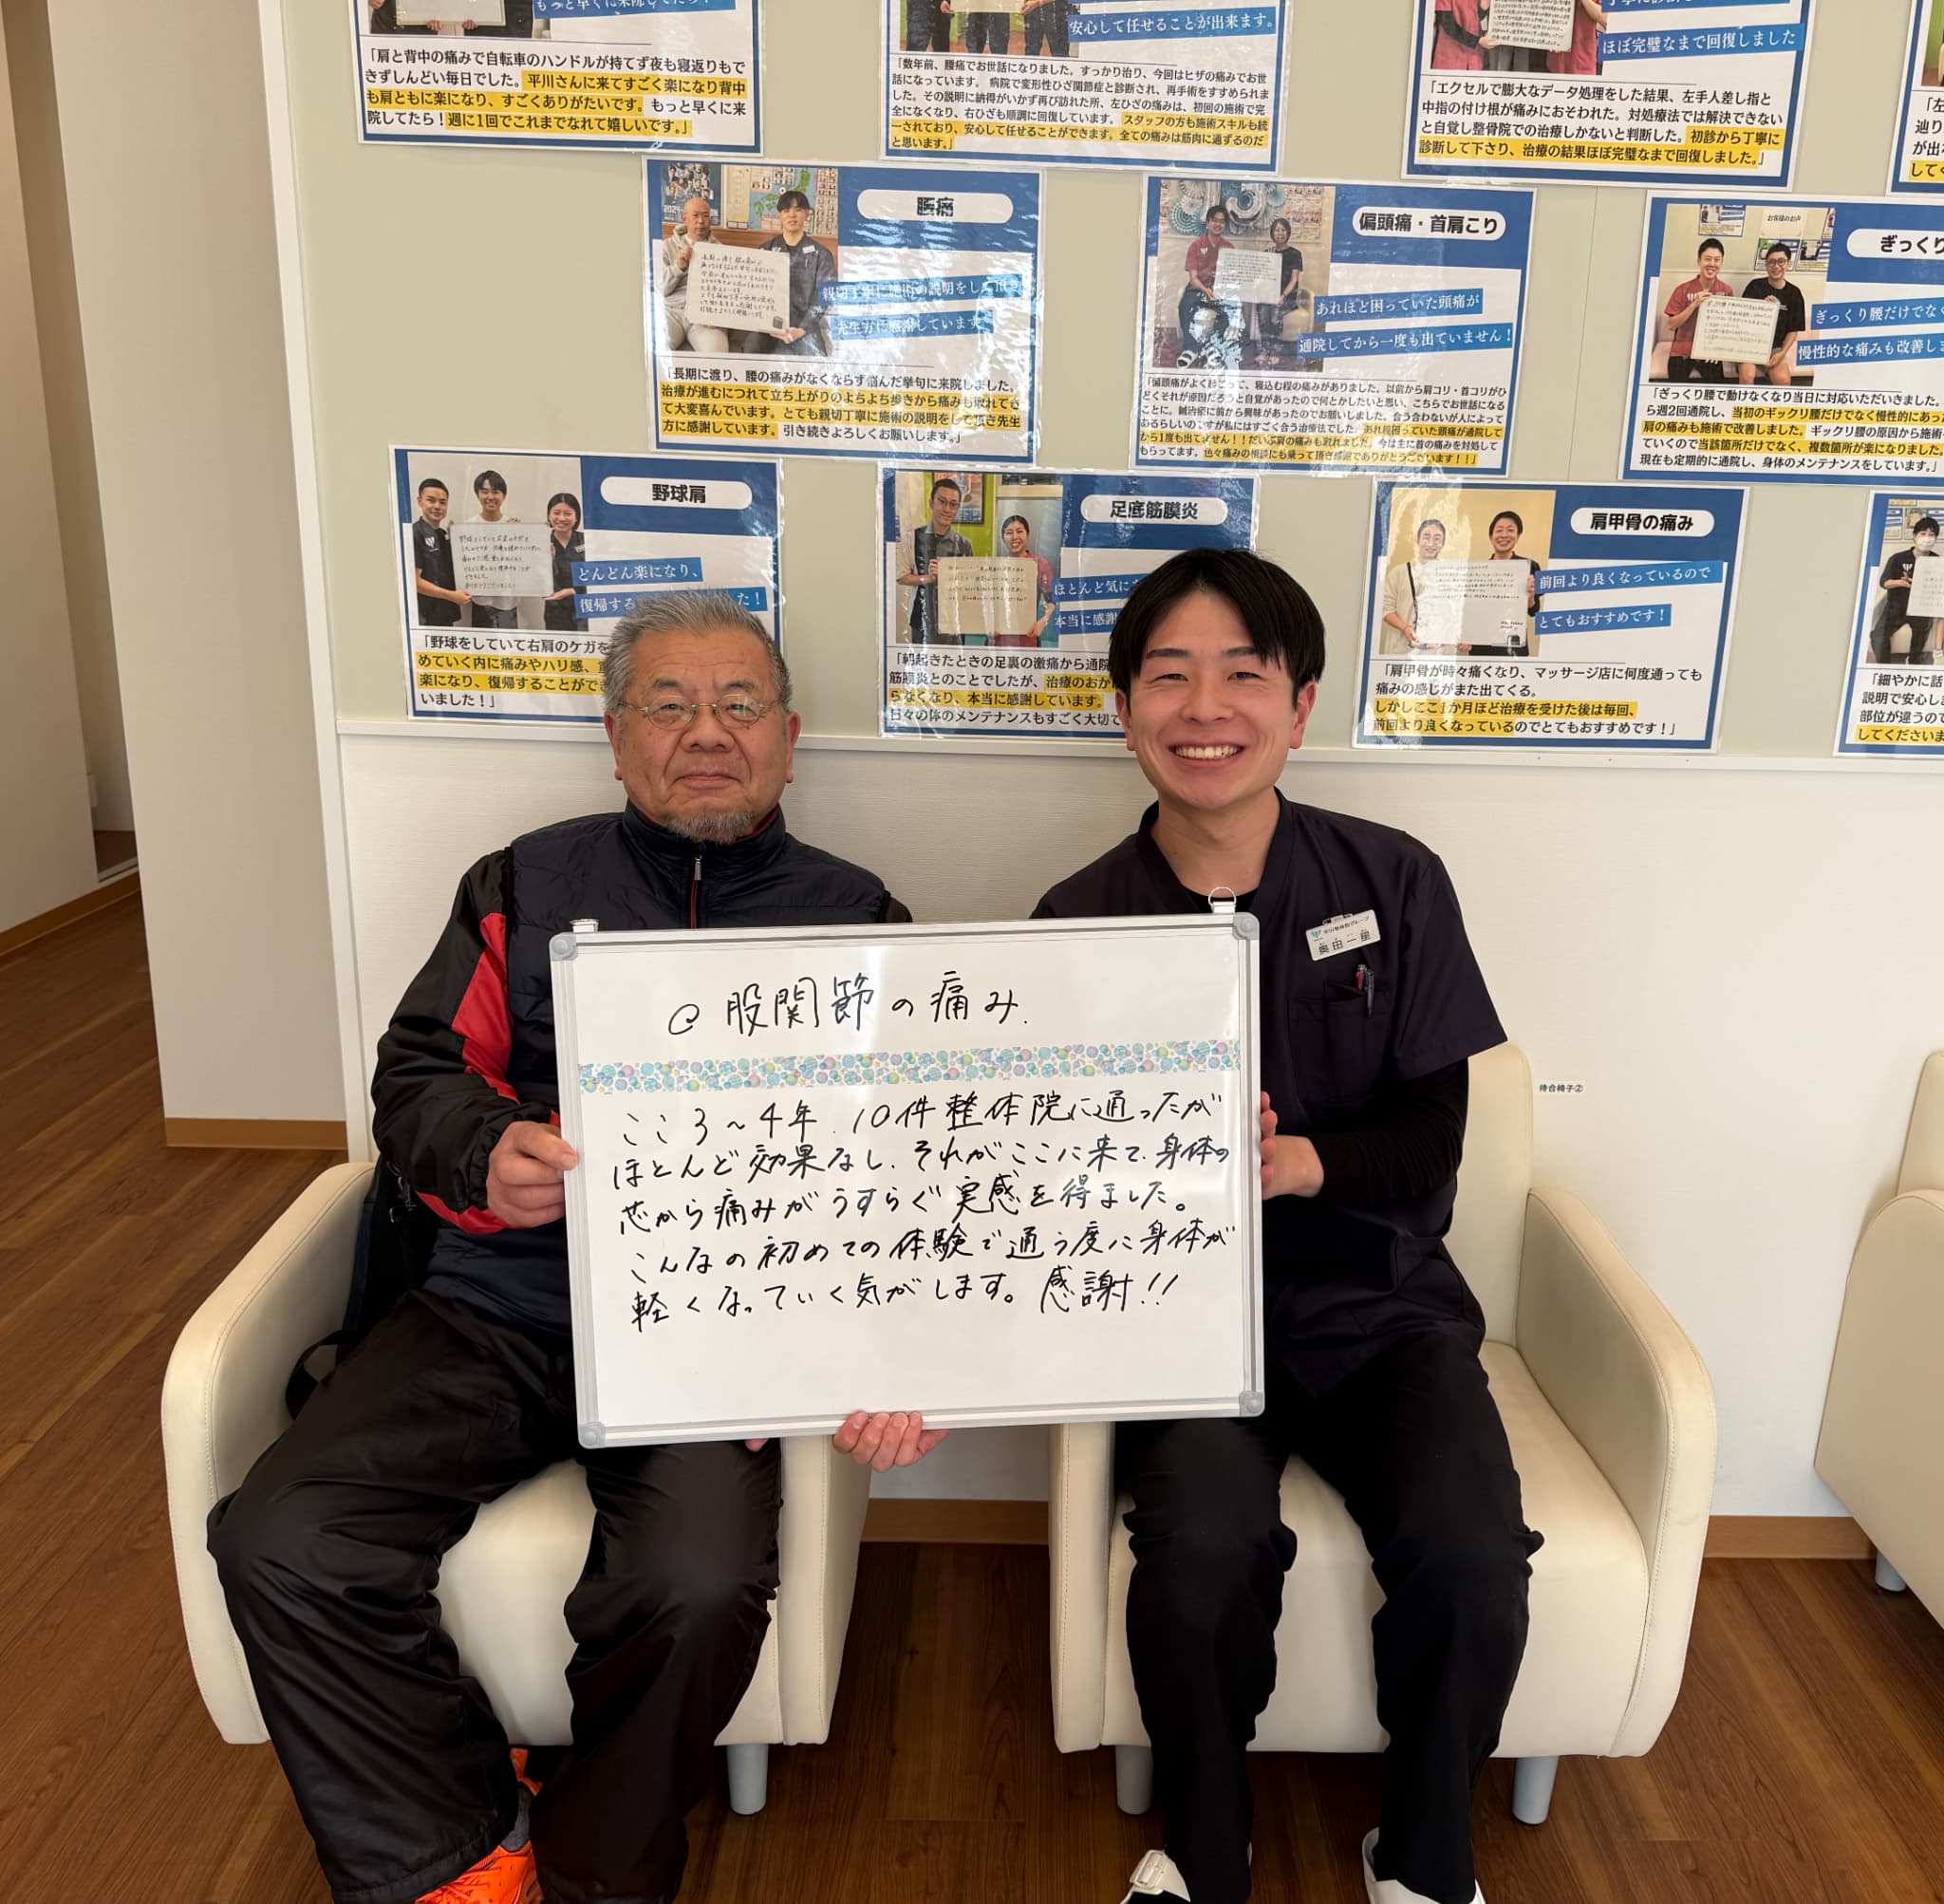 もっと早くに来院してたら!
「肩と背中の痛みで自転車のハンドルが持てず夜も寝返りもで
きずしんどい毎日でした。平川さんに来てすごく楽になり背中
も肩ともに楽になり、すごくありがたいです。もっと早くに来
院してたら!週に1回でこれまでなれて嬉しいです。」
安心して任せることが出来ます。
「数年前、腰痛でお世話になりました。すっかり治り、今回はヒザの痛みでお世
話になっています。病院で変形性ひざ関節症と診断され、再手術をすすめられま
した。その説明に納得がいかず再び訪れた所、左ひざの痛みは、初回の施術で完
全になくなり、右ひざも順調に回復しています。スタッフの方も施術スキルも統
一されており、安心して任せることができます。全ての痛みは筋肉に通ずるのだ
と思います。」
ほぼ完璧なまで回復しました
「エクセルで膨大なデータ処理をした結果、左手人差し指と
中指の付け根が痛みにおそわれた。対処療法では解決できない
と自覚し整骨院での治療しかないと判断した。初診から丁寧に
診断して下さり、治療の結果ほぼ完璧なまで回復しました。」
腰痛
親切丁寧に施術の説明をして頂き
先生方に感謝しています。
「長期に渡り、腰の痛みがなくならず悩んだ挙句に来院しました。
治療が進むにつれて立ち上がりのよちよち歩きから痛みも取れてき
て大変喜んでいます。とても親切丁寧に施術の説明をして頂き先生
方に感謝しています。引き続きよろしくお願いします。」
偏頭痛・首肩こり
あれほど困っていた頭痛が
通院してから一度も出ていません!
「偏頭痛がよく起こって、寝込む程の痛みがありました。以前から肩コリ・首コリがひ
どくそれが原因だろうと自覚があったので何とかしたいと思い、こちらでお世話になる
ことに。鍼治療に前から興味があったのでお願いしました。合う合わないが人によって
あるらしいのですが私にはすごく合う治療法でした。あれ程困っていた頭痛が通院して
から1度も出てません!!だいぶ肩の痛みも取れました。今は主に首の痛みを対処して
もらってます。色々痛みの相談にも乗って頂き感謝でありがとうございます!!」
お客様のお声
ぎっくり
ぎっくり腰だけでなく
慢性的な痛みも改善しま
「ぎっくり腰で動けなくなり当日に対応いただいきました。
ら週2回通院し、当初のギックリ腰だけでなく慢性的にあった
肩の痛みも施術で改善しました。ギックリ腰の原因から施術
ていくので当該箇所だけでなく、複数箇所が楽になりました。
現在も定期的に通院し、身体のメンテナンスをしています。」
野球肩
どんどん楽になり、
復帰する
た!
「野球をしていて右肩のケガを
めていく内に痛みやハリ感、重
楽になり、復帰することができ
いました!」
足底筋膜炎
ほとんど気に
本当に感謝
「朝起きたときの足裏の激痛から通院
筋膜炎とのことでしたが、治療のおか
らなくなり、本当に感謝しています。
日々の体のメンテナンスもすごく大切で
肩甲骨の痛み
前回より良くなっているので
とてもおすすめです!
「肩甲骨が時々痛くなり、マッサージ店に何度通っても
痛みの感じがまた出てくる。
しかしここ1か月ほど治療を受けた後は毎回、
前回より良くなっているのでとてもおすすめです!」
「細やかに話
説明で安心しま
部位が違うので
してくださいま
奥田一星
@股関節の痛み.
ここ3~4年.10件整体院に通ったが
ほとんど効果なし.それがここに来て.身体の
芯から痛みがうすらぐ実感を得ました。
こんなの初めての体験で通う度に身体が
軽くなっていく気がします。感謝!!
待合椅子②